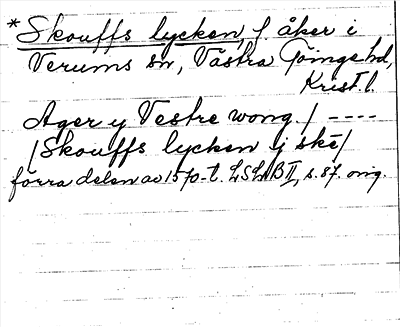 *Skouffs lycken, f. åker i
Verums sn, Västra Göinge hd,
Krist. l.
Ager y Vestre wong. / ----
/Skouffs lycken ij skē/
förra delen av 1570-t. LSLB II, s. 87. orig.